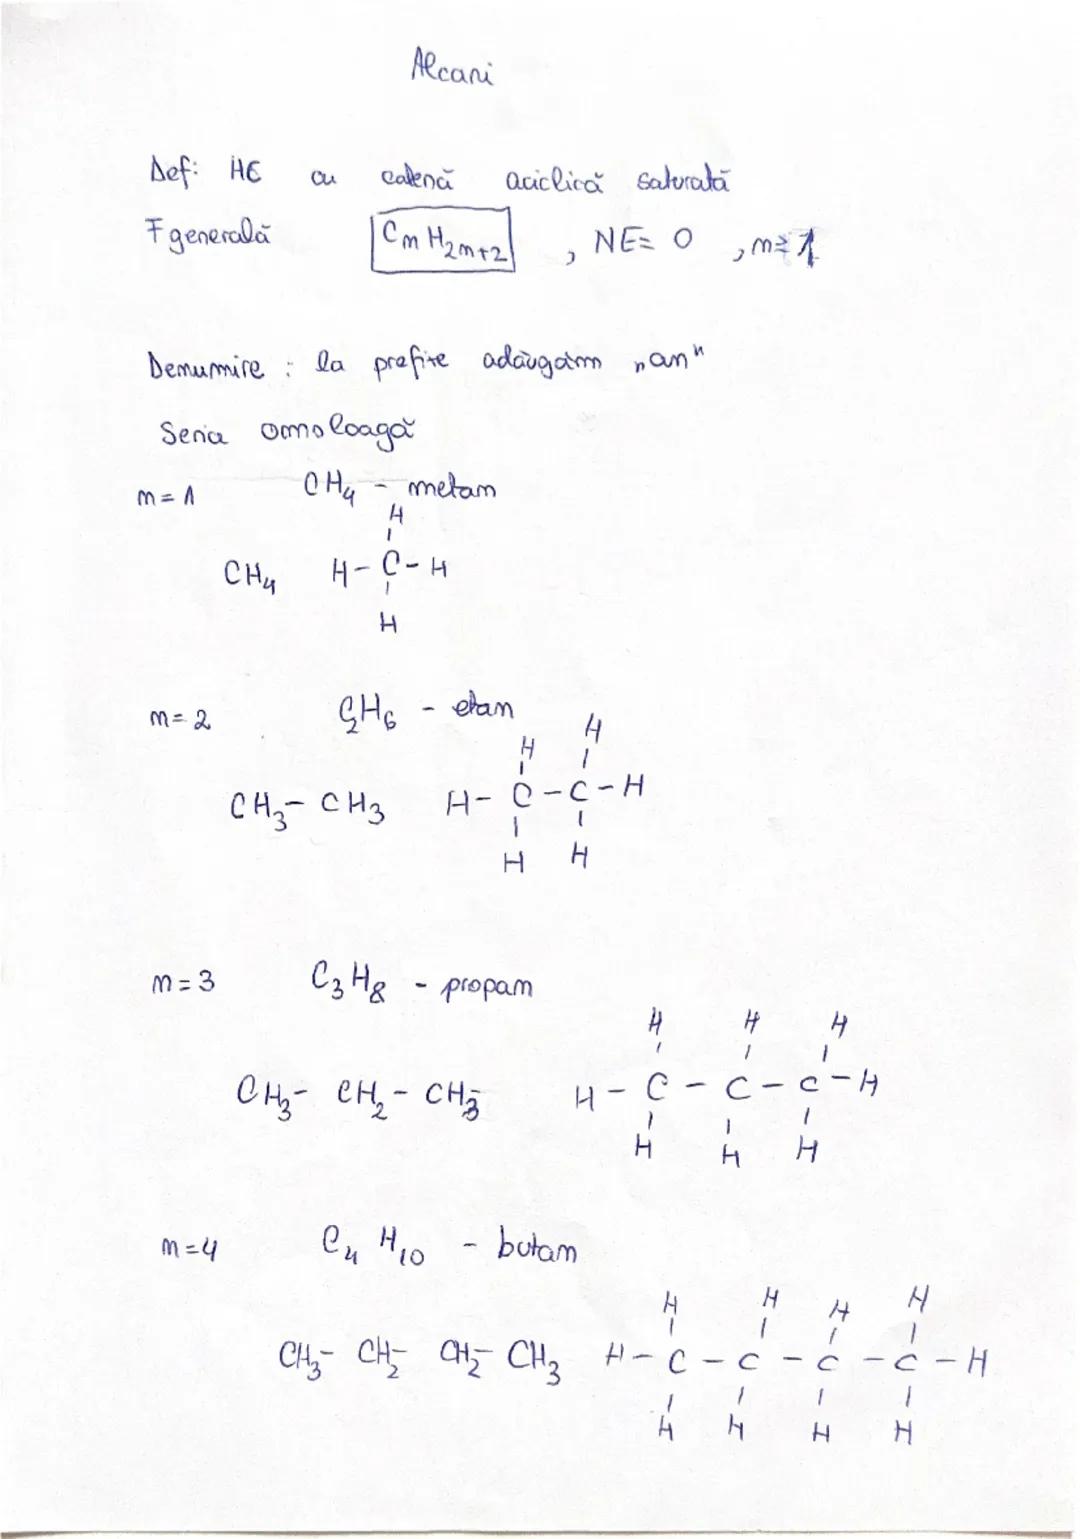 Alcani
Def: HC cu catenă aciclică saturată
F generală CnH2n+2 , NE= 0 , n≥1
Denumire : la prefixe adăugăm „an"
Seria omoloagă
n=1 CH4 - metan
H
CH4 H-C-H
H
n=2 C2H6 - etan
H H
CH3-CH3 H-C-C-H
H H
n=3 C3H8 - propan
H H H
CH3-CH2-CH3 H-C-C-C-H
H H H
n=4 C4H10 - butan
H H H H
CH3-CH2-CH2-CH3 H-C-C-C-C-H
H H H H